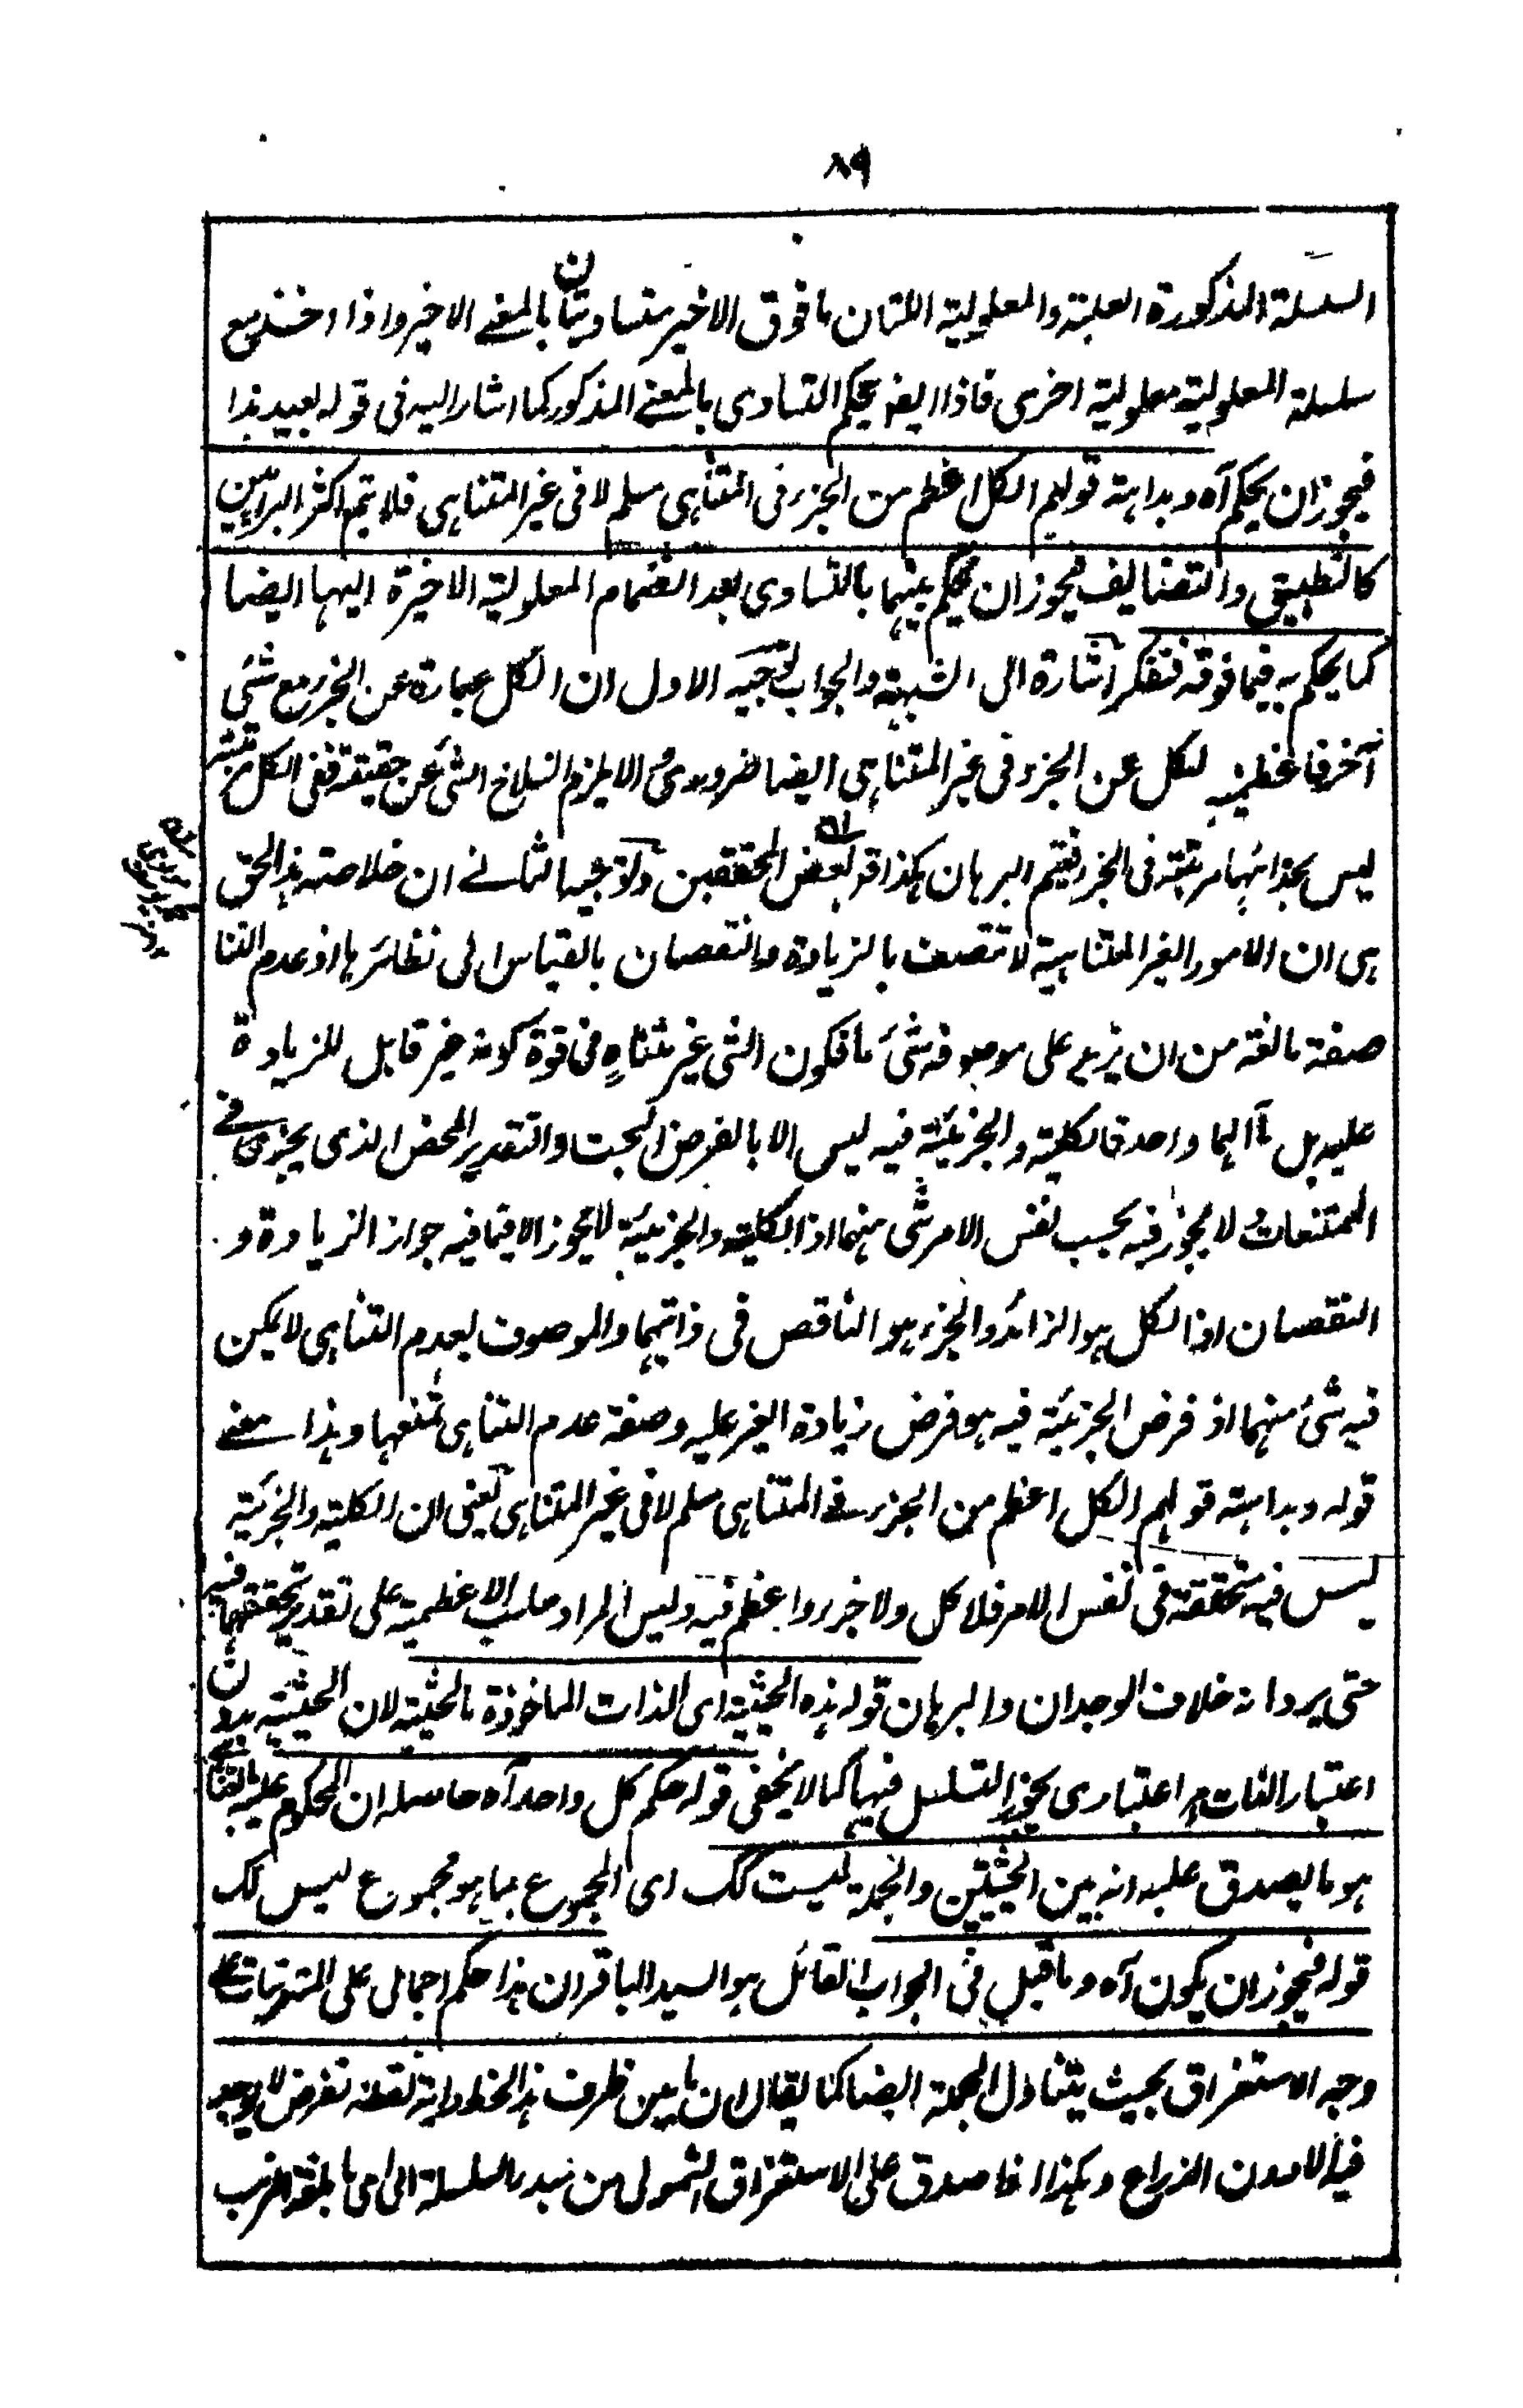 ٨٩
السلسلة المذكورة العلية والمعلولية اللتان ما فوق الاخير متساويتان بالمعنے الاخير واذا اخذ مع
سلسلة المعلولية معلولية اخرى فاذا ايضا يحكم التساوى بالمعنے المذكور كما اشار اليه فى قوله بعيد هذا
فيجوز ان يحكم آه وبداهته قولهم الكل اعظم من الجزء فى المتناهى مسلم لا فى غير المتناهى فلا يتم اكثر البراهين
كالتطبيق والتضايف فيجوز ان يحكم بينهما بالتساوى بعد انضمام المعلولية الاخيرة اليها ايضا
كما يحكم به فيما فوقه فتفكر اشارة الى الشبهة والجواب توجيه الاول ان الكل عبارة عن الجزء مع شئى
آخر فاعظمية لكل عن الجزء فى غير المتناهى ايضا ضرورى والا يلزم انسلاخ الشئ عن حقيقة ففى الكل مرتبة
ليس بحذائها مرتبة فى الجزء فيتم البرهان هكذا قوله بعض المحققين وتوجيه الثانے ان خلاصته هذا الحق
هى ان الامور الغير المتناهية لا تتصف بالزيادة والنقصان بالقياس الى نظائرها اذ عدم التنا
صفة مانعة من ان يزيد على موصوفه شئ ما فكون الشئ غير متناهٍ فى قوة كونه غير قابل للزيادة
عليه بل مآلهما واحد فالكلية والجزئية فيه ليس الا بالفرض البحت والتقدير المحض الذى يجرى فے
الممتنعات ولا يجوز فيه بحسب نفس الامر شئ منهما اذ الكلية والجزئية لا يجوز الا فيما فيه جواز الزيادة و
النقصان اذ الكل هو الزائد والجزء هو الناقص فى ذاتيهما والموصوف بعدم التناهى لا يمكن
فيه شئ منهما اذ فرض الجزئية فيه هو فرض زيادة الغير عليه وصفة عدم التناهى تمنعها وهذا معنے
قوله وبداهته قولهم الكل اعظم من الجزء فے المتناهى مسلم لا فى غير المتناهى يعنى ان الكلية والجزئية
ليس فيه متحققة فى نفس الامر فلا كل ولا جزء ولا اعظم فيه وليس المراد سلب الاعظمية على تقدير تحققهما فيه
حتى يرد انه خلاف الوجدان والبرهان قوله هذه الحيثية اى الذات الماخوذة بالحيثية لان الحيثية بدون
اعتبار الذات امر اعتبارى يجوز التسلسل فيها كما لا يخفى قوله حكم كل واحد آه حاصله ان المحكوم عليه بالتناهى
هو ما يصدق عليه انه بين الحيثيتين والجملة ليست كك اى المجموع بما هو مجموع ليس كك
قوله فيجوز ان يكون آه وما قيل فى الجواب القائل هو السيد الباقر ان هذا حكم اجمالى على المترتبات على
وجه الاستغراق بحيث يتناول الجملة ايضا كما يقال ان ما بين طرف هذا الخط واية نقطة تفرض لا يوجد
فيه الا دون الذراع وهكذا اذا صدق على الاستغراق الشمولى من مبدء السلسلة الى اى ما بلغه الترتب